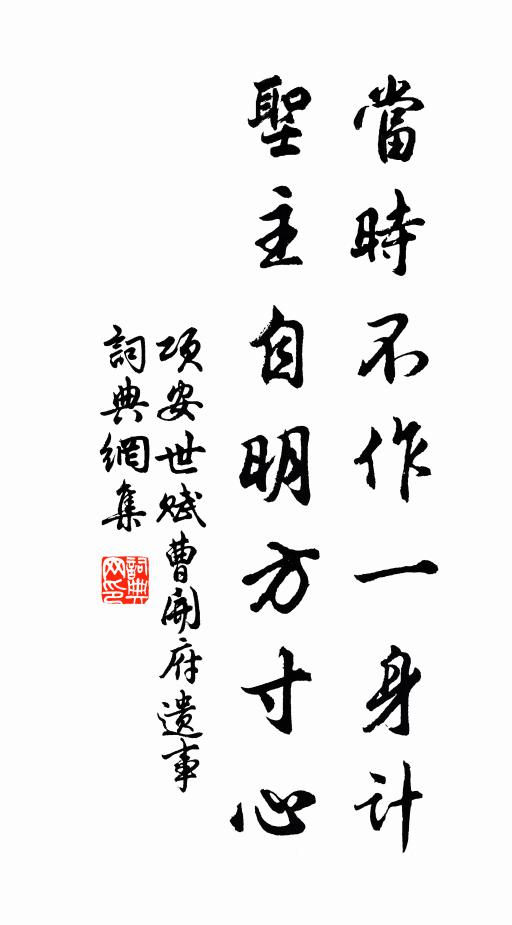 當時不作一身計
聖主自明方寸心
項安世賦曹開府遺事
詞典網集
詞典网印